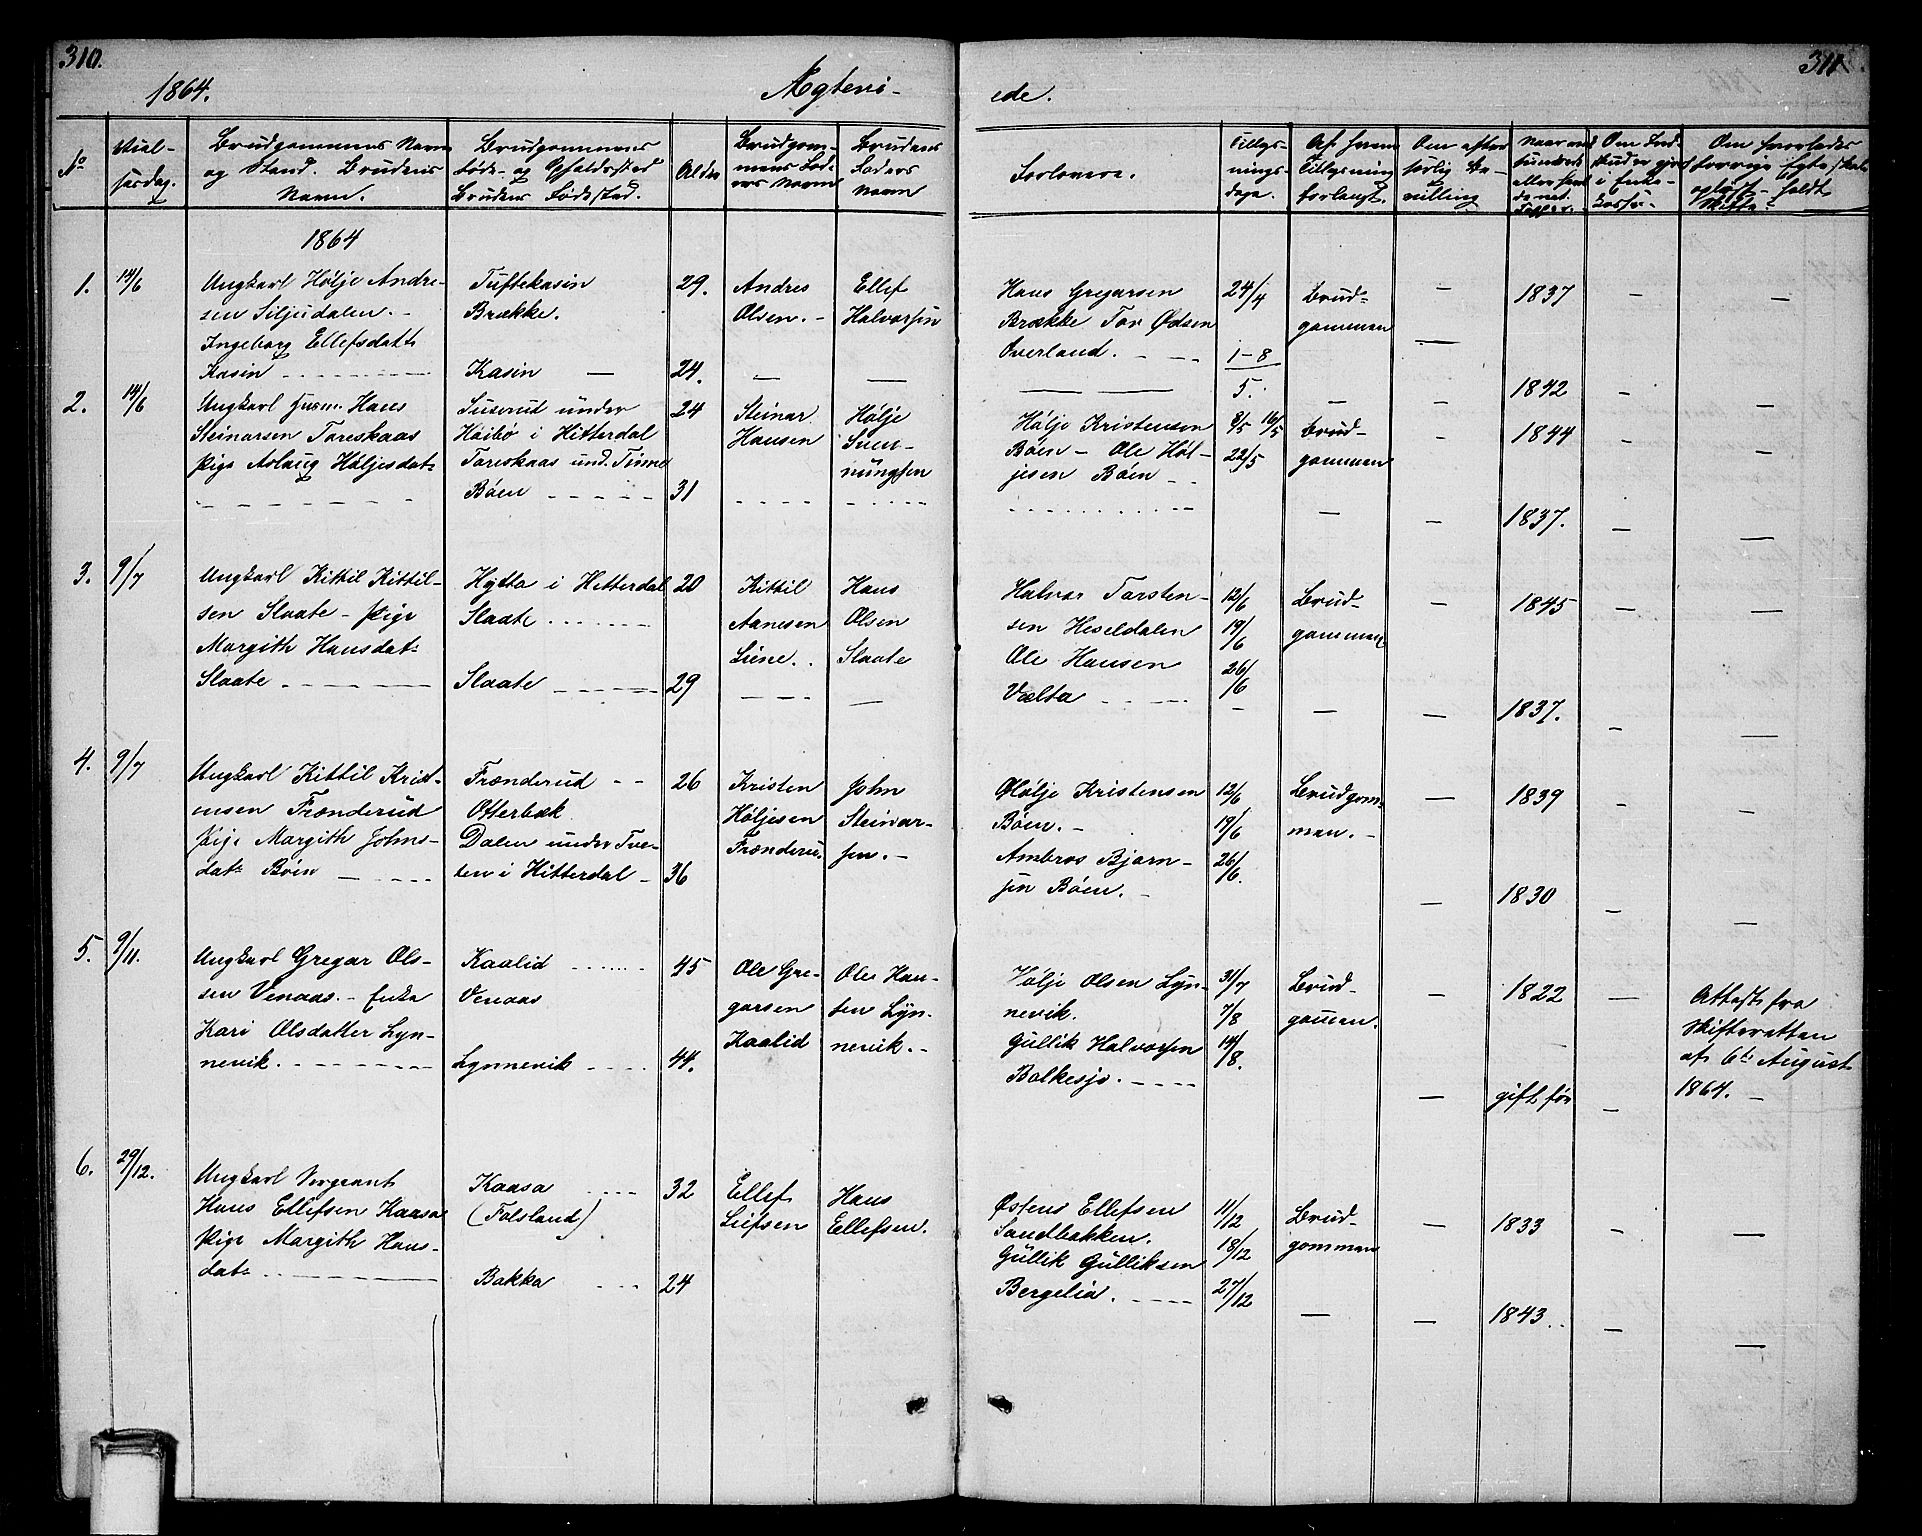 310.
311.
1864.
Ægtevi-
ede.
No
Viel-
sesdag.
Brudgommens Navn
og Stand. Brudens
Navn.
Brudgommens
Føde- og Opholdssted
Brudens Fødested.
Alder
Brudgom-
mens Fad-
ers Navn
Brudens
Faders
Navn
Forlovere.
Tillys-
nings-
dage.
Af hvem
Tillysning
forlangt.
1864
1.
14/6
Ungkarl Hølje Andre-
sen Siljudalen. -
Ingeborg Ellefsdatt
Kasin
Tuftekasin
Brække.
Kasin
29.
24.
Andres
Olsen. -
Ellef
Halvorsen
Hans Gregarsen
Brække Tor Ødsen
Overland.
24/4
1-8
5.
Brud-
gommen
1837
1842
2.
14/6
Ungkarl Husm. Hans
Steinarsen Toreskaas
Pige Aslaug Høljesdat
Susrud under
Høibø i Hitterdal
Toreskaas und. Tinne
Bøen
24
31
Steinar
Hansen
Hølje
Sven-
nungsen
Hølje Kristensen
Bøen - Ole Høl-
jesen Bøen
8/5 16/5
22/5
Brud-
gommen
1844
1837.
3.
9/7
Ungkarl Kittil Kittil-
sen Slaate - Pige
Margith Hansdat:
Slaate
Hytta i Hitterdal
Slaate
Slaate
20
29
Kittil
Aanesen
Liene.
Hans
Olsen
Slaate
Halvor Torsten-
sen Heseldalen
Ole Hansen
Vælta
12/6
19/6
26/6
Brud-
gommen
1845
1837.
4.
9/7
Ungkarl Kittil Krist-
ensen Frænderud
Pige Margith Johns-
dat: Bøen
Frænderud
Otterbæk
Dalen under Tve-
ten i Hitterdal -
26
36
Kristen
Høljesen
Frænderu.
John
Steinar-
sen. -
Hølje Kristensen
Bøen. -
Ambros Bjørn-
sen Bøen. -
12/6
19/6
26/6.
Brudgom-
men. -
1839
1830
5.
9/11.
Ungkarl Gregar Ols-
sen Venaas. - Enke
Kari Olsdatter Lyn-
nevik.
Kaalid
Venaas
Lynnevik
45
44.
Ole Gre-
garsen
Kaalid
Ole Han-
sen Lyn-
nevik. -
Hølje Olsen Lyn-
nevik.
Gullik Halvorsen
Bolkesjø.
31/7
7/8
14/8.
Brud-
gommen.
1822
gift før
Attest fra
Skifteretten
af 6te August
1864. -
6.
29/12.
Ungkarl Sergeant
Hans Ellefsen Kaasa
Pige Margith Hans-
dat:
Kaasa
(Folsland)
Bakka
32
24
Ellef
Liefsen
Hans
Ellefsen.
Østens Ellefsen
Sandbakken.
Gullik Gulliksen
Bergelia.
11/12
18/12
27/12
Brud-
gommen
1833
1843.